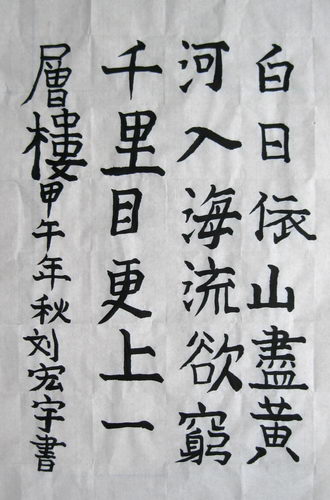 白日依山盡黃
河入海流欲窮
千里目更上一
層樓甲午年秋刘宏宇書